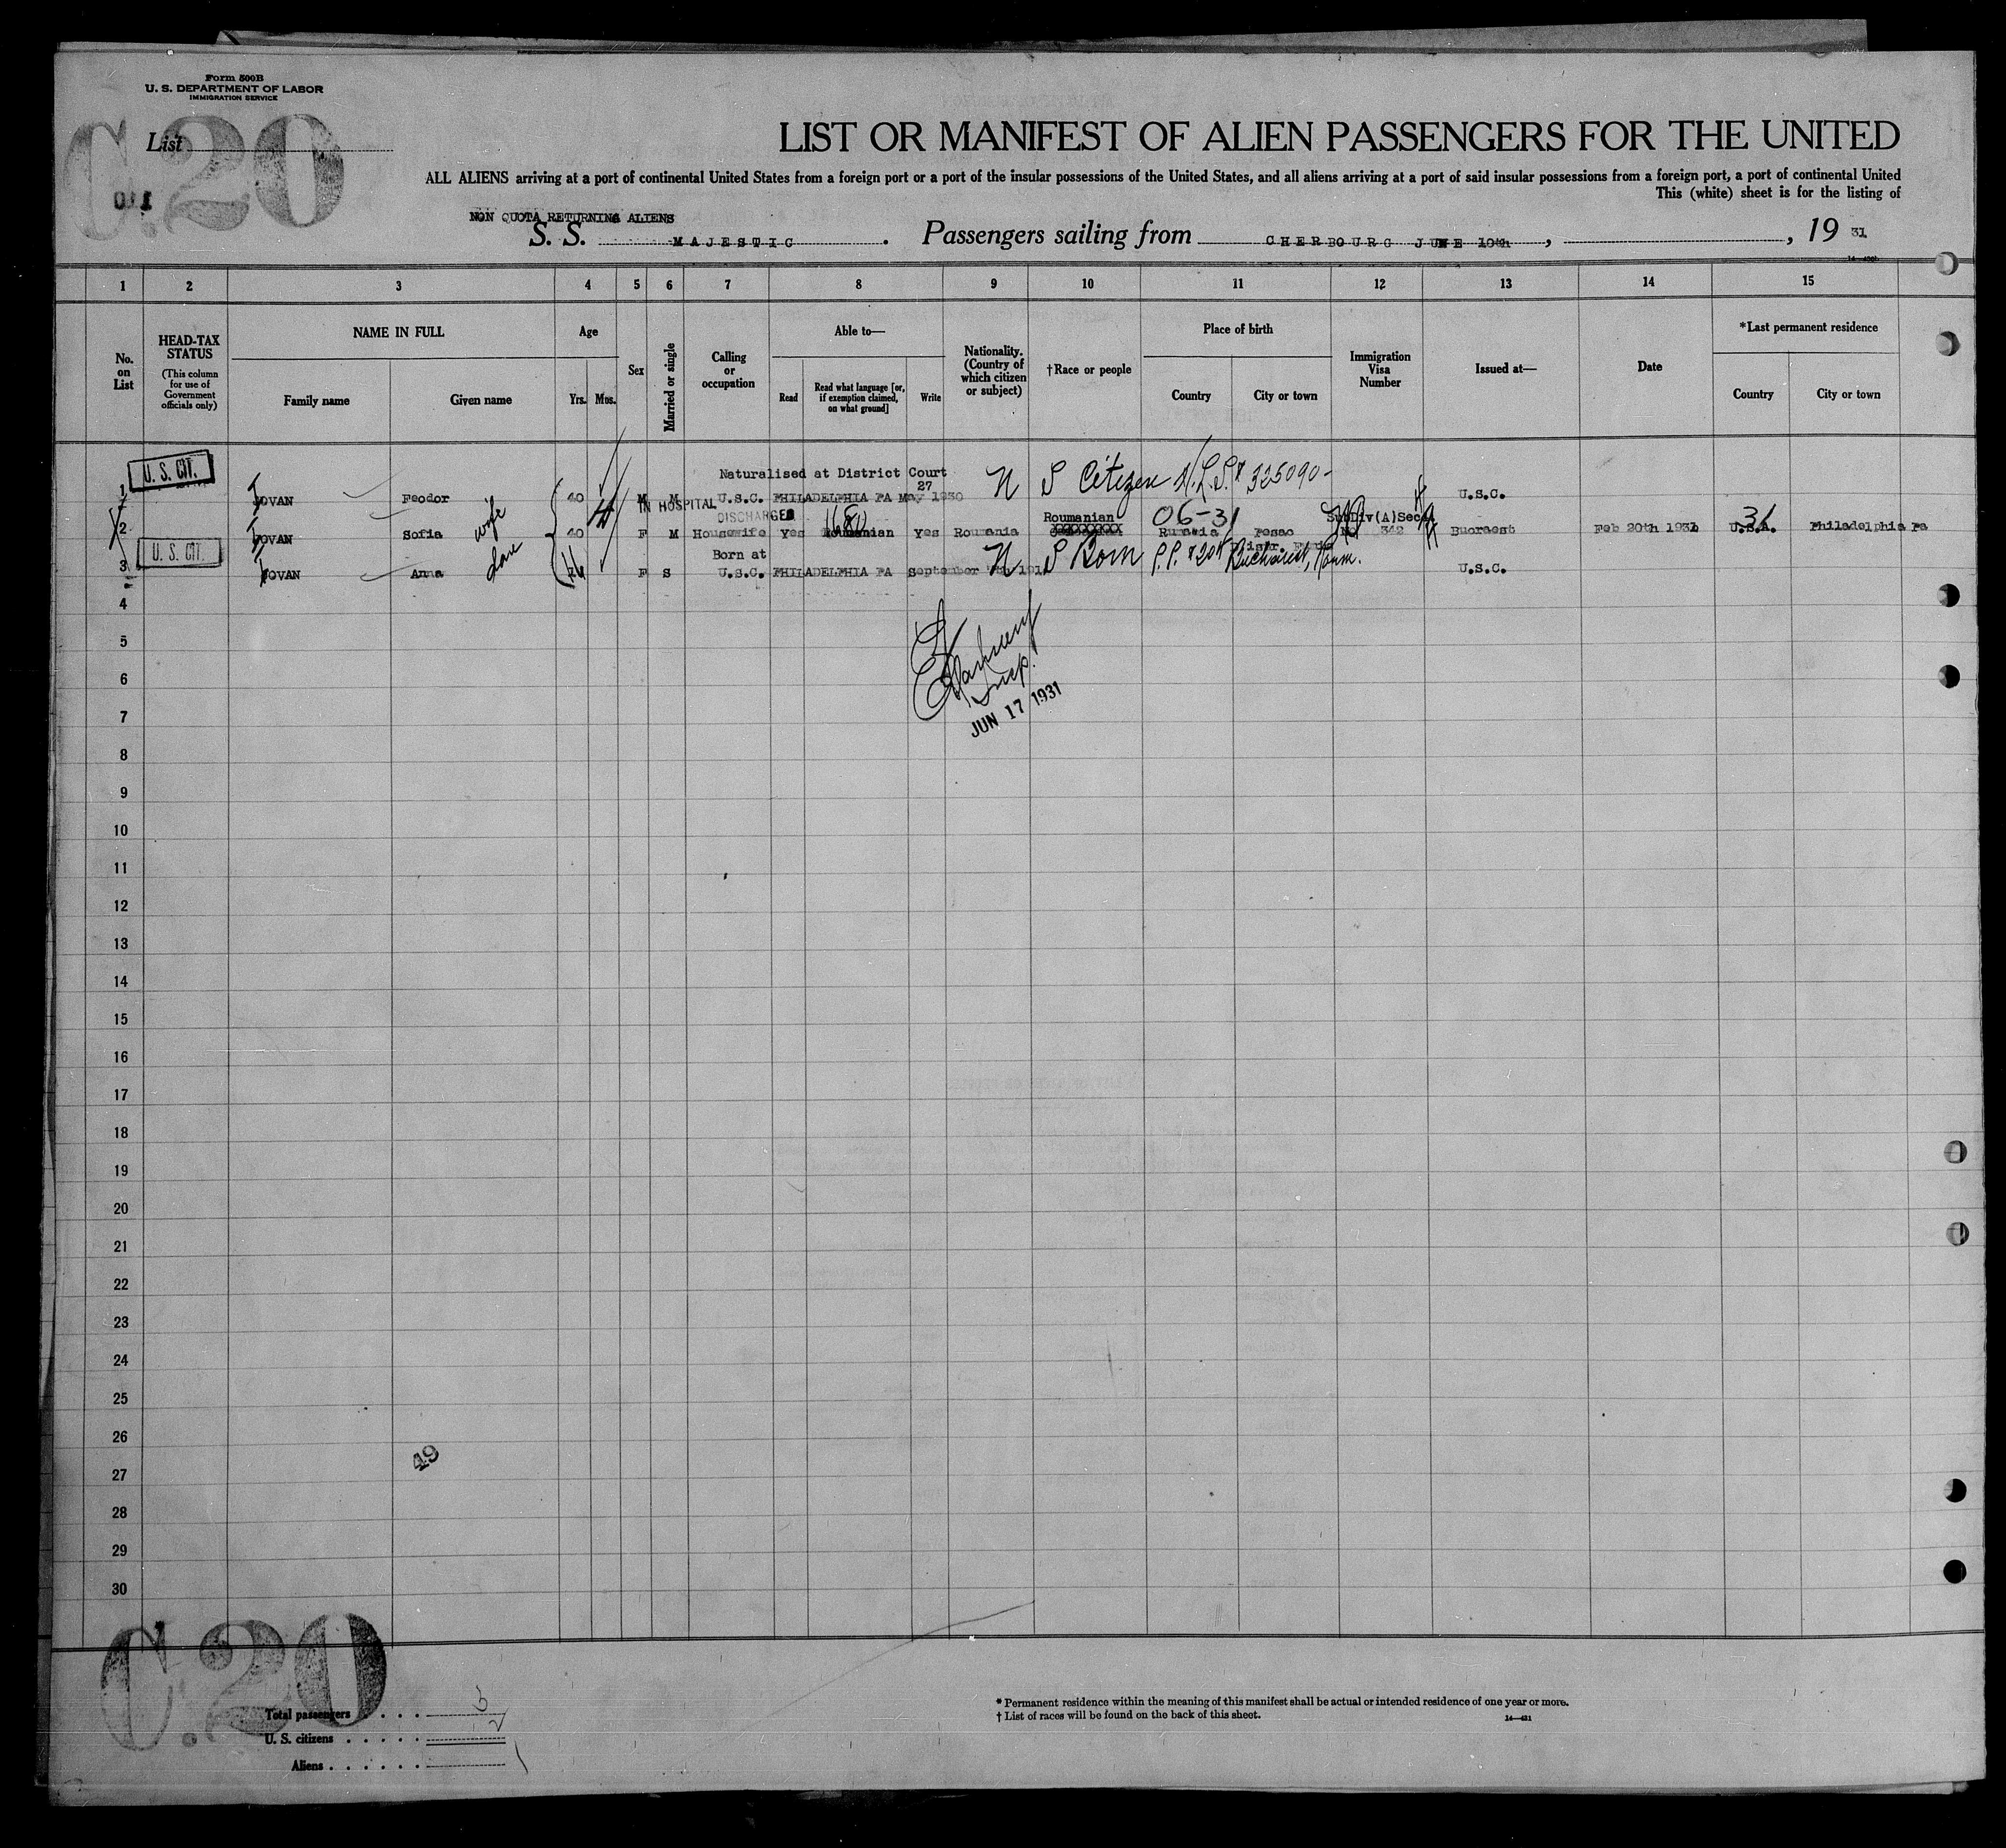 Form 500B
U. S. DEPARTMENT OF LABOR
IMMIGRATION SERVICE
C.20
List
LIST OR MANIFEST OF ALIEN PASSENGERS FOR THE UNITED
ALL ALIENS arriving at a port of continental United States from a foreign port or a port of the insular possessions of the United States, and all aliens arriving at a port of said insular possessions from a foreign port, a port of continental United
This (white) sheet is for the listing of
NON QUOTA RETURNING ALIENS
S. S. MAJESTIC . Passengers sailing from CHERBOURG JUNE 10th , , 19 31
1 2 3 4 5 6 7 8 9 10 11 12 13 14 15
No. on List
HEAD-TAX STATUS
(This column for use of Government officials only)
NAME IN FULL
Family name Given name
Age
Yrs. Mos.
Sex
Married or single
Calling or occupation
Able to—
Read
Read what language [or, if exemption claimed, on what ground]
Write
Nationality. (Country of which citizen or subject)
†Race or people
Place of birth
Country City or town
Immigration Visa Number
Issued at—
Date
*Last permanent residence
Country City or town
U. S. CIT.
Naturalised at District Court
27
1 OVAN Feodor 40 M M U.S.C. PHILADELPHIA PA May 1930 N S Citizen 325090 U.S.C.
IN HOSPITAL
DISCHARGED
Roumanian 06-31
2 OVAN Sofia wife 40 F M Housewife Yes Roumanian Yes Roumania 342 Bucraest Feb 20th 1931 U.S.A. Philadelphia Pa
U. S. CIT.
Born at
3 OVAN Anna F S U.S.C. PHILADELPHIA PA September N S Born P.P. Bucharest, Roum. U.S.C.
4
5
6
Insp.
7
JUN 17 1931
8
9
10
11
12
13
14
15
16
17
18
19
20
21
22
23
24
25
26
49
27
28
29
30
C.20
Total passengers 3
U. S. citizens 2
Aliens 1
* Permanent residence within the meaning of this manifest shall be actual or intended residence of one year or more.
† List of races will be found on the back of this sheet.
14—431